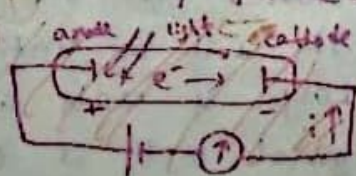 anode light cathode
e⁻ →
+ -
i ↑